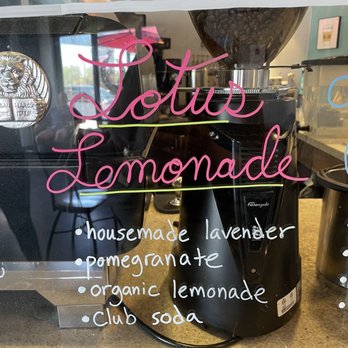 Lotus
Lemonade
•housemade lavender
•pomegranate
•organic lemonade
•Club soda